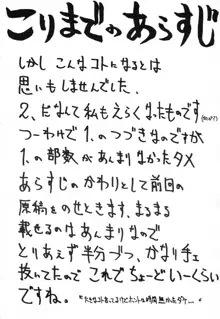 こりまでのあらすじ
しかし こんなコトになるとは
思いもしませんでした。
2、だなんて私もえらくなったものです
つーわけで 1.のつづきなのですが
1.の部数があんまりなかったタメ
あらすじのかわりとして前回の
原稿をのせときます、まるまる
載せるのはあんまりなので
とりあえず半分づつ、かなり手ェ
抜いてたので これでちょーどいーくらい
ですね。